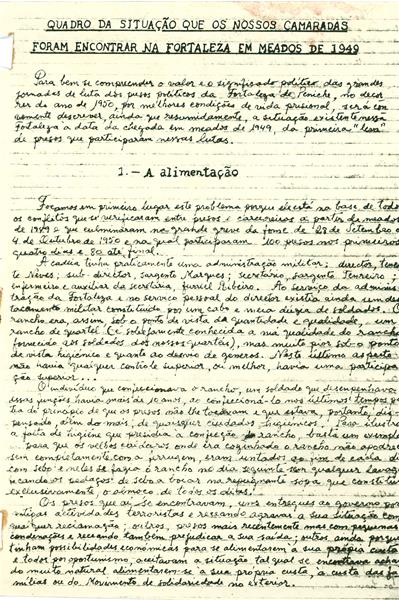 QUADRO DA SITUAÇÃO QUE OS NOSSOS CAMARADAS
FORAM ENCONTRAR NA FORTALEZA EM MEADOS DE 1949
Para bem se compreender o valor e o significado político das grandes
jornadas de luta dos presos políticos da Fortaleza de Peniche, no decor-
rer do ano de 1950, por melhores condições de vida prisional, será con-
veniente descrever, ainda que resumidamente, a situação existente nessa
Fortaleza a data da chegada em meados de 1949, da primeira "leva"
de presos que participaram nessas lutas.
1. - A alimentação
Focamos em primeiro lugar este problema porque ele está na base de todos
os conflitos que se verificaram entre presos e carcereiros a partir de meados
de 1949 e que culminaram na grande greve da fome de 28 de Setembro a
4 de Outubro de 1950 e na qual participaram 100 presos nos primeiros
quatro dias e 80 até final.
A cadeia tinha praticamente uma administração militar: director, Tenen-
te Neves; sub-director, sargento Marques; secretário, sargento
enfermeiro e auxiliar da secretaria, furriel Ribeiro. Ao serviço da adminis-
tração da Fortaleza e no serviço pessoal do director existia ainda um des-
tacamento militar constituído por um cabo e meia dúzia de soldados. O
rancho era, assim, sob o ponto de vista da quantidade e qualidade, um
rancho de quartel (é sobejamente conhecida a má qualidade do rancho
fornecido aos soldados dos nossos quartéis), mas muito pior sob o ponto
de vista higiénico e quanto ao desvio de generos. Neste último aspecto
não havia qualquer controle superior, ou melhor, havia uma participa-
ção superior...
O indivíduo que confeccionava o rancho, um soldado que desempenhava
essas funções havia mais de 10 anos, ao confeccioná-lo nos últimos tempos
de princípio de que os presos não lhe tocavam e que estava, portanto, dis-
pensado, além do mais, de quaisquer cuidados higiénicos. Para ilustrar
a falta de higiene que presidia a confeção do rancho, basta um exemplo:
para que os velhos caldeiros onde era cozinhado o rancho não apodreces-
sem completamente com a ferrugem, eram untados ao fim do dia
com sebo e neles se fazia o rancho no dia seguinte sem qualquer lavagem
ficando os pedaços de sebo a boiar na repugnante sopa que constituia
exclusivamente, o almoço de todos os dias.
Os presos que aí se encontravam, uns entregues ao governo por
antigas actividades terroristas e receando agravar a sua situação com
qualquer reclamação; outros, presos mais recentemente mas com pequenas
condenações e receando também prejudicar a sua saida; outros, ainda porque
tinham possibilidades económicas para se alimentarem à sua própria custa
e todos por oportunismo, aceitavam a situação tal qual se encontrava
do muito natural alimentarem-se à sua própria custa, à custa das fa-
mílias ou do Movimento de solidariedade no exterior.